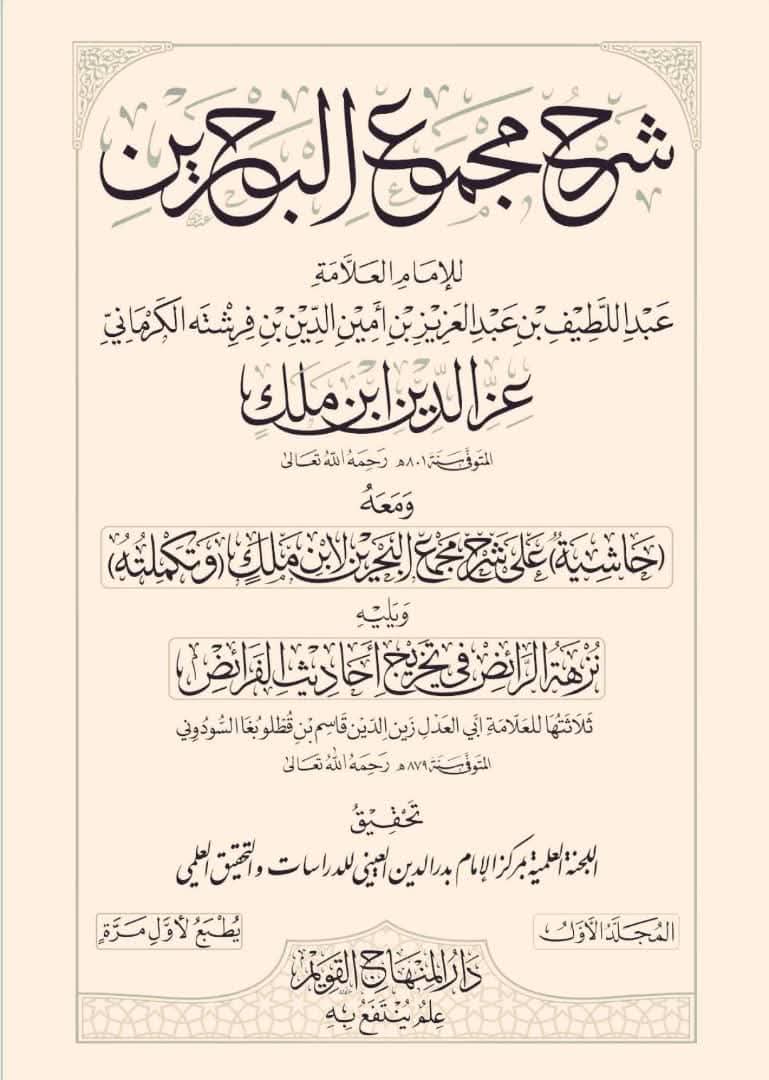 شَرْحُ مَجْمَعِ البَحْرَيْنِ
لِلإِمَامِ العَلَّامَةِ
عَبْدِ اللَّطِيْفِ بْنِ عَبْدِ العَزِيْزِ بْنِ أَمِيْنِ الدِّيْنِ بْنِ فِرِشْتَه الكَرْمَانِيِّ
عِزِّ الدِّيْنِ ابْنِ مَلَكٍ
المتَوفَّى سَنَة ٨٠١هـ رَحِمَهُ اللهُ تَعَالىٰ
وَمَعَهُ
(حَاشِيَةٌ) عَلَى شَرْحِ مَجْمَعِ البَحْرَيْنِ لابْنِ مَلَكٍ (وَتَكْمِلَتُهُ)
وَيَلِيْهِ
نُزْهَةُ الرَّائِضِ فِي تَخْرِيْجِ أَحَادِيْثِ الفَرَائِضِ
ثَلَاثَتُهَا للعَلَّامَةِ ابِي العَدْلِ زَينِ الدِّيْنِ قَاسِمِ بْنِ قُطْلُوبُغَا السُّودُونِي
المتَوفَّى سَنَة ٨٧٩هـ رَحِمَهُ اللهُ تَعَالىٰ
تَحْقِيْقُ
اللجنة العلمية بمركز الإمام بدر الدين العيني للدراسات والتحقيق العلمي
المُجَلَّدُ الأَوَّلُ
يُطْبَعُ لأَوَّلِ مَرَّةٍ
دَارُ المِنْهَاجِ القَوِيْمِ
عِلمٌ يُنْتَفَعُ بِهِ